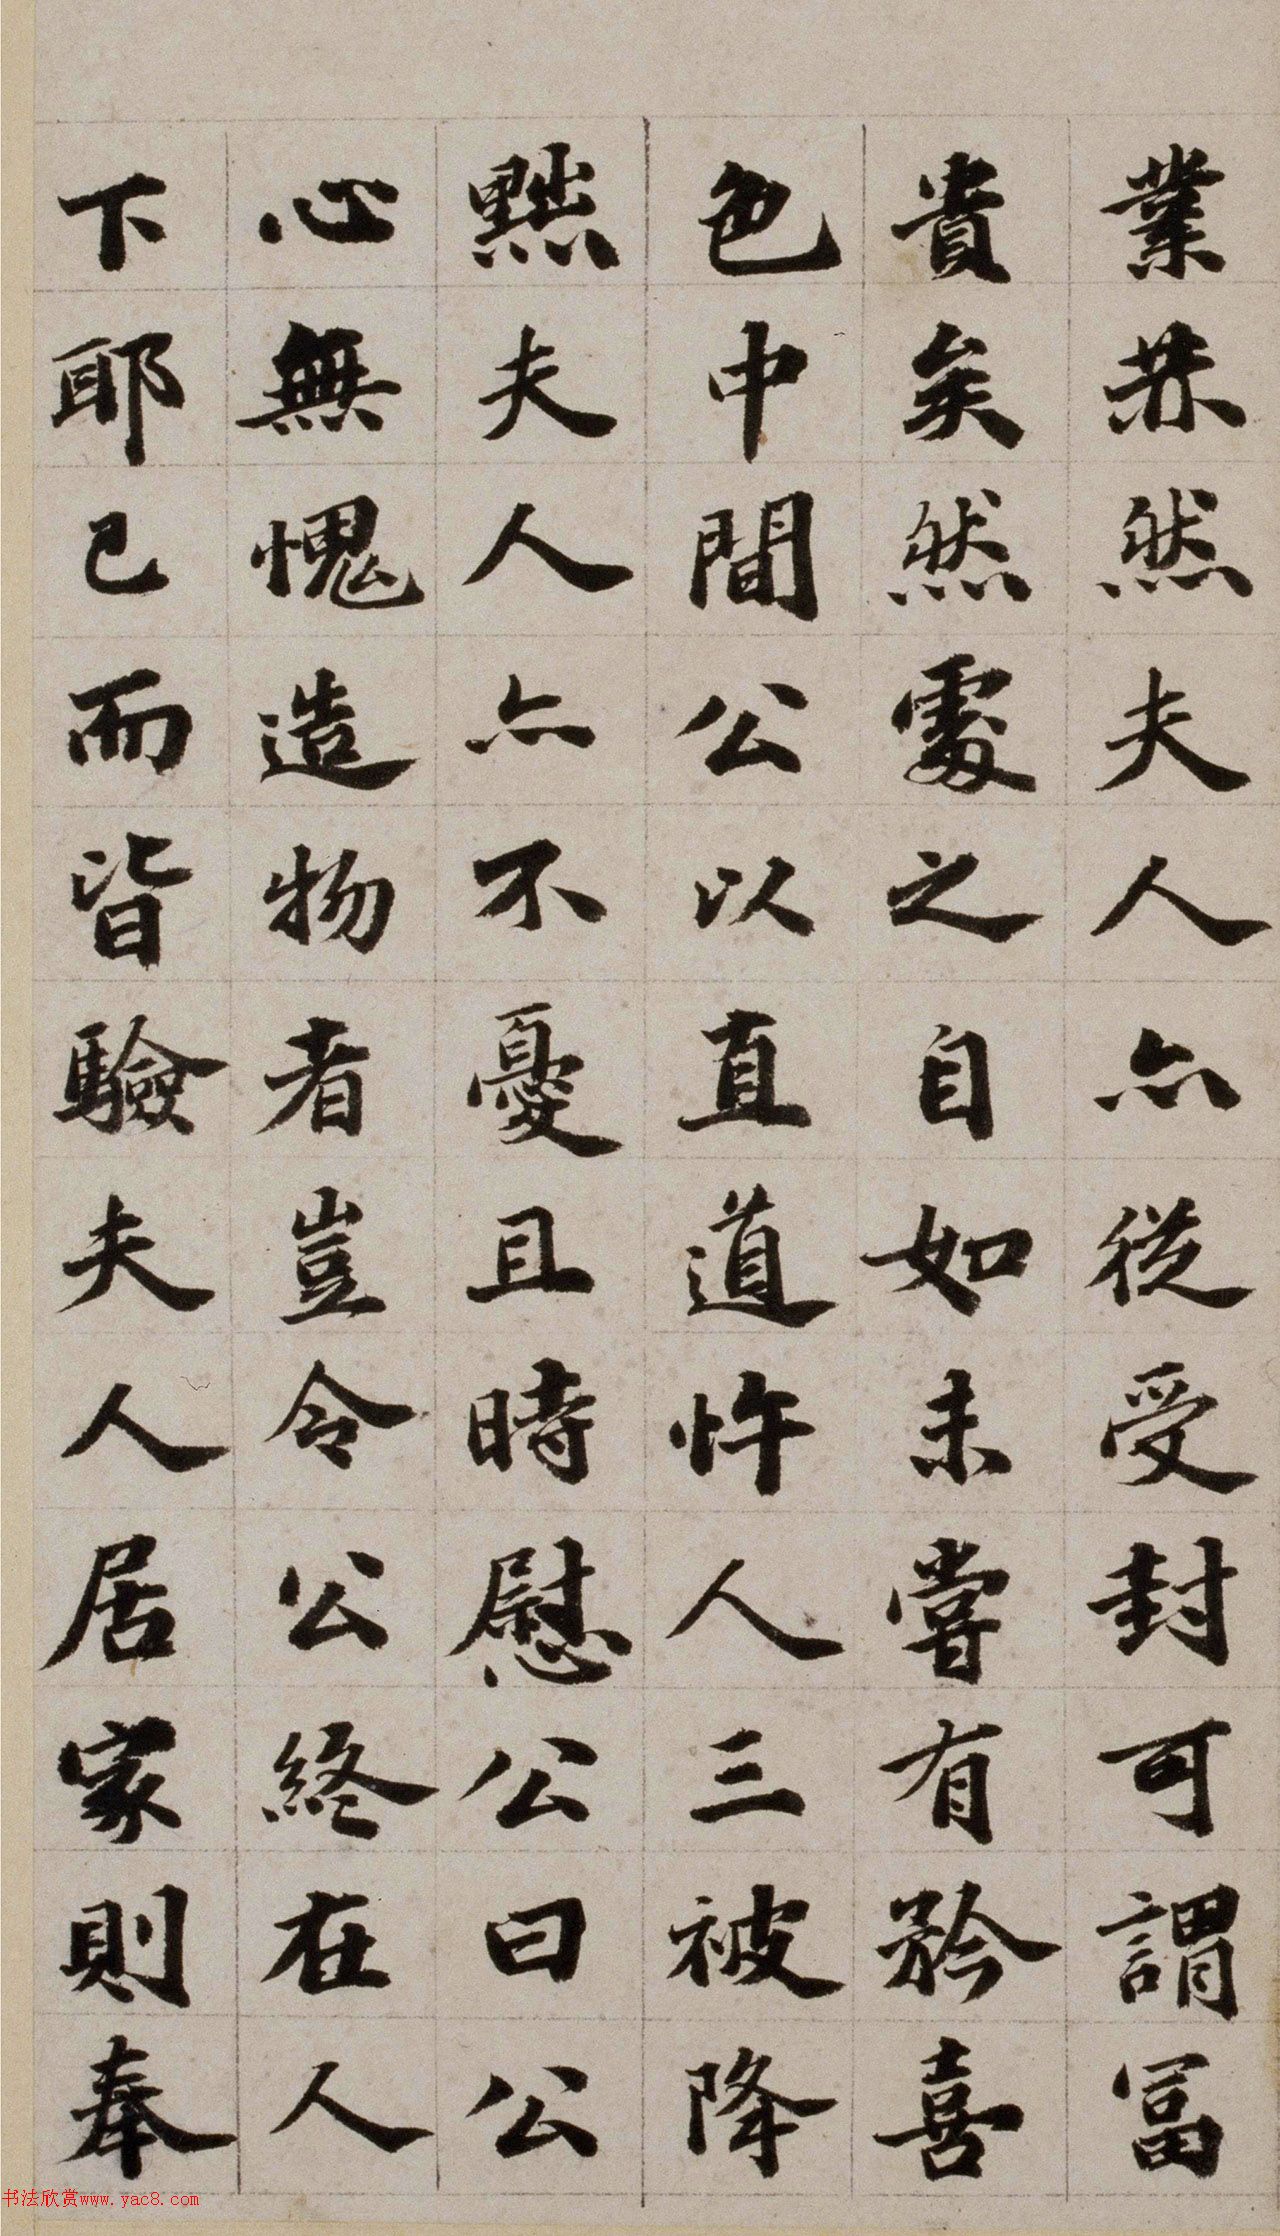 業恭然夫人亦從受封可謂冨
貴矣然處之自如未嘗有矜喜
色中間公以直道忤人三被降
黜夫人亦不憂且時慰公曰公
心無愧造物者豈令公終在人
下耶已而皆驗夫人居家則奉
书法欣赏www.yac8.com